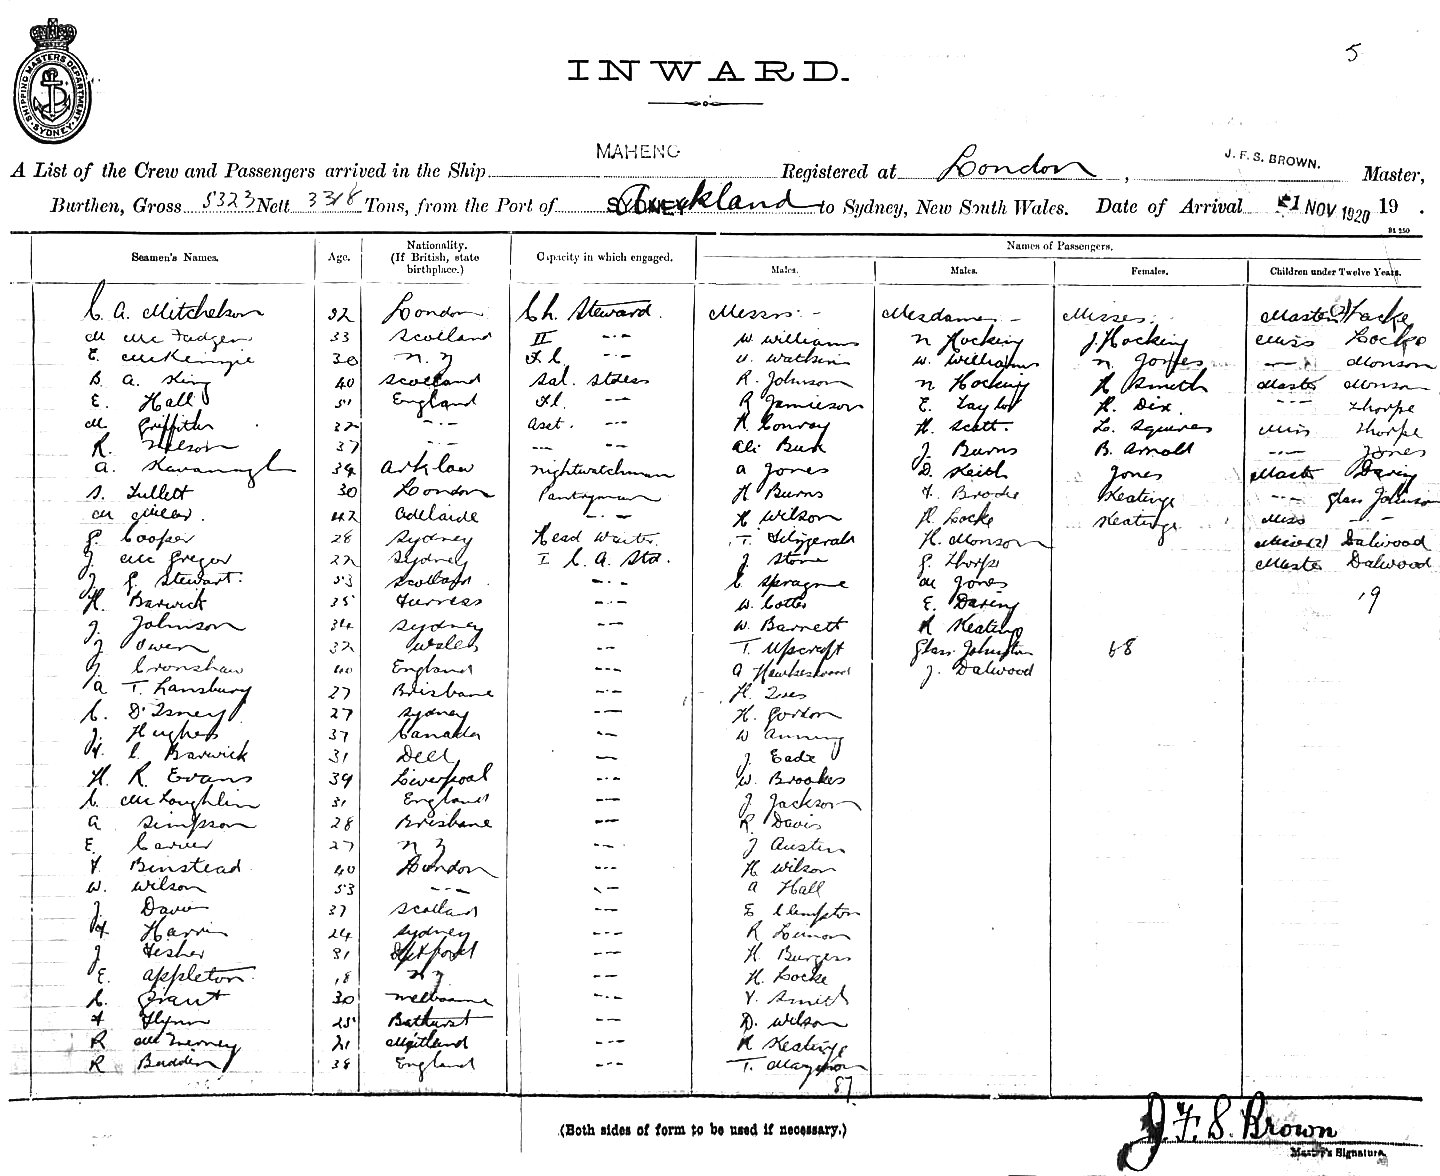 SHIPPING MASTERS DEPARTMENT
SYDNEY
5
INWARD.
A List of the Crew and Passengers arrived in the Ship MAHENO Registered at London, J.F.S. BROWN. Master,
Burthen, Gross 5323 Nett 3318 Tons, from the Port of Auckland to Sydney, New South Wales. Date of Arrival 1 NOV 1920 19 .
Seamen's Names. Age. Nationality. (If British, state birthplace.) Capacity in which engaged. Names of Passengers.
Males. Males. Females. Children under Twelve Years.
C A. Mitchelson 32 London Ch. Steward. Messrs:- Mesdames - Misses. Master (2) Locke
M McFadgen 33 Scotland II -·- W Williams N Hocking J. Hocking Miss Locke
E. McKenzie 30 N. Z F.C -·- Watkins W. Williams N. Jones -·- Monson
B. A. King 40 Scotland Sal. Stdess R. Johnson N Hocking H Smith Master Monson
E. Hall 51 England F.C. -·- R Jamieson E. Taylor H. Dix. -·- Thorpe
M Griffith 32 -·- Asst. -·- H Conroy H. Scott. L. Squires Miss Thorpe
R. Nelson 37 -·- -·- -·- Ali Bux J. Burns B. Arnold -·- Jones
A. Kavanagh 34 Arklow Nightwatchman A Jones D. Keith Jones Master Daring
S. Tullett 30 London Pantryman H Burns F. Brodie Keatinge -·- Glass Johnson
M 42 Adelaide -·- H Wilson H. Locke Keatinge Miss -·-
G. Cooper 28 Sydney Head Waiter. T. Fitzgerald H. Monson Misses (2) Dalwood
J. McGregor 22 Sydney I C. A. Std. J. Stone G. Thorpe Master Dalwood
J G. Stewart. 53 Scotland -·- C Sprague M Jones
H. Barwick 35 Furness -·- W. Cotter E. Daring 19
J. Johnson 34 Sydney -·- W. Barnett R Keatinge
J Owen 32 Wales -·- T. Upscroft Glass Johnston 68
J. Cronshaw 40 England -·- A Hawkeswood J. Dalwood
A T. Lansbury 27 Brisbane -·- H. Ives
C. D'Isney 27 Sydney -·- H. Gordon
J. Hughes 37 Canada -·- W Anning
F. C. Barwick 31 Deal - J. Eade
H. R. Evans 39 Liverpool -·- W. Brookes
C. McLoughlin 31 England -·- J Jackson
A Simpson 28 Brisbane -·- R. Davis
E. Carver 27 N Z -·- J Austin
F. Binstead 40 London -·- H Wilson
W. Wilson 53 -·- -·- A Hall
J. Davis 37 Scotland -·- E Clempston
F Harris 24 Sydney -·- R Lennon
J Fisher 31 -·- H Burgess
E. Appleton 18 N Z. -·- H. Locke
C. Grant 30 Melbourne -·- F. Smith
F Flynn 25 Bathurst -·- D. Wilson
R McInerney 21 Maitland -·- R Keatinge
R Budden 38 England -·- T. Maymon
87
(Both sides of form to be used if necessary.)
J. F. S. Brown
Master's Signature.